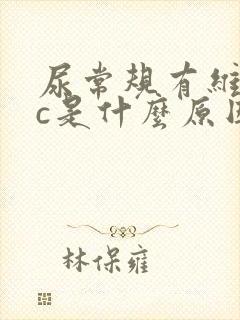 尿常规有維
c是什麼原因
林保雍